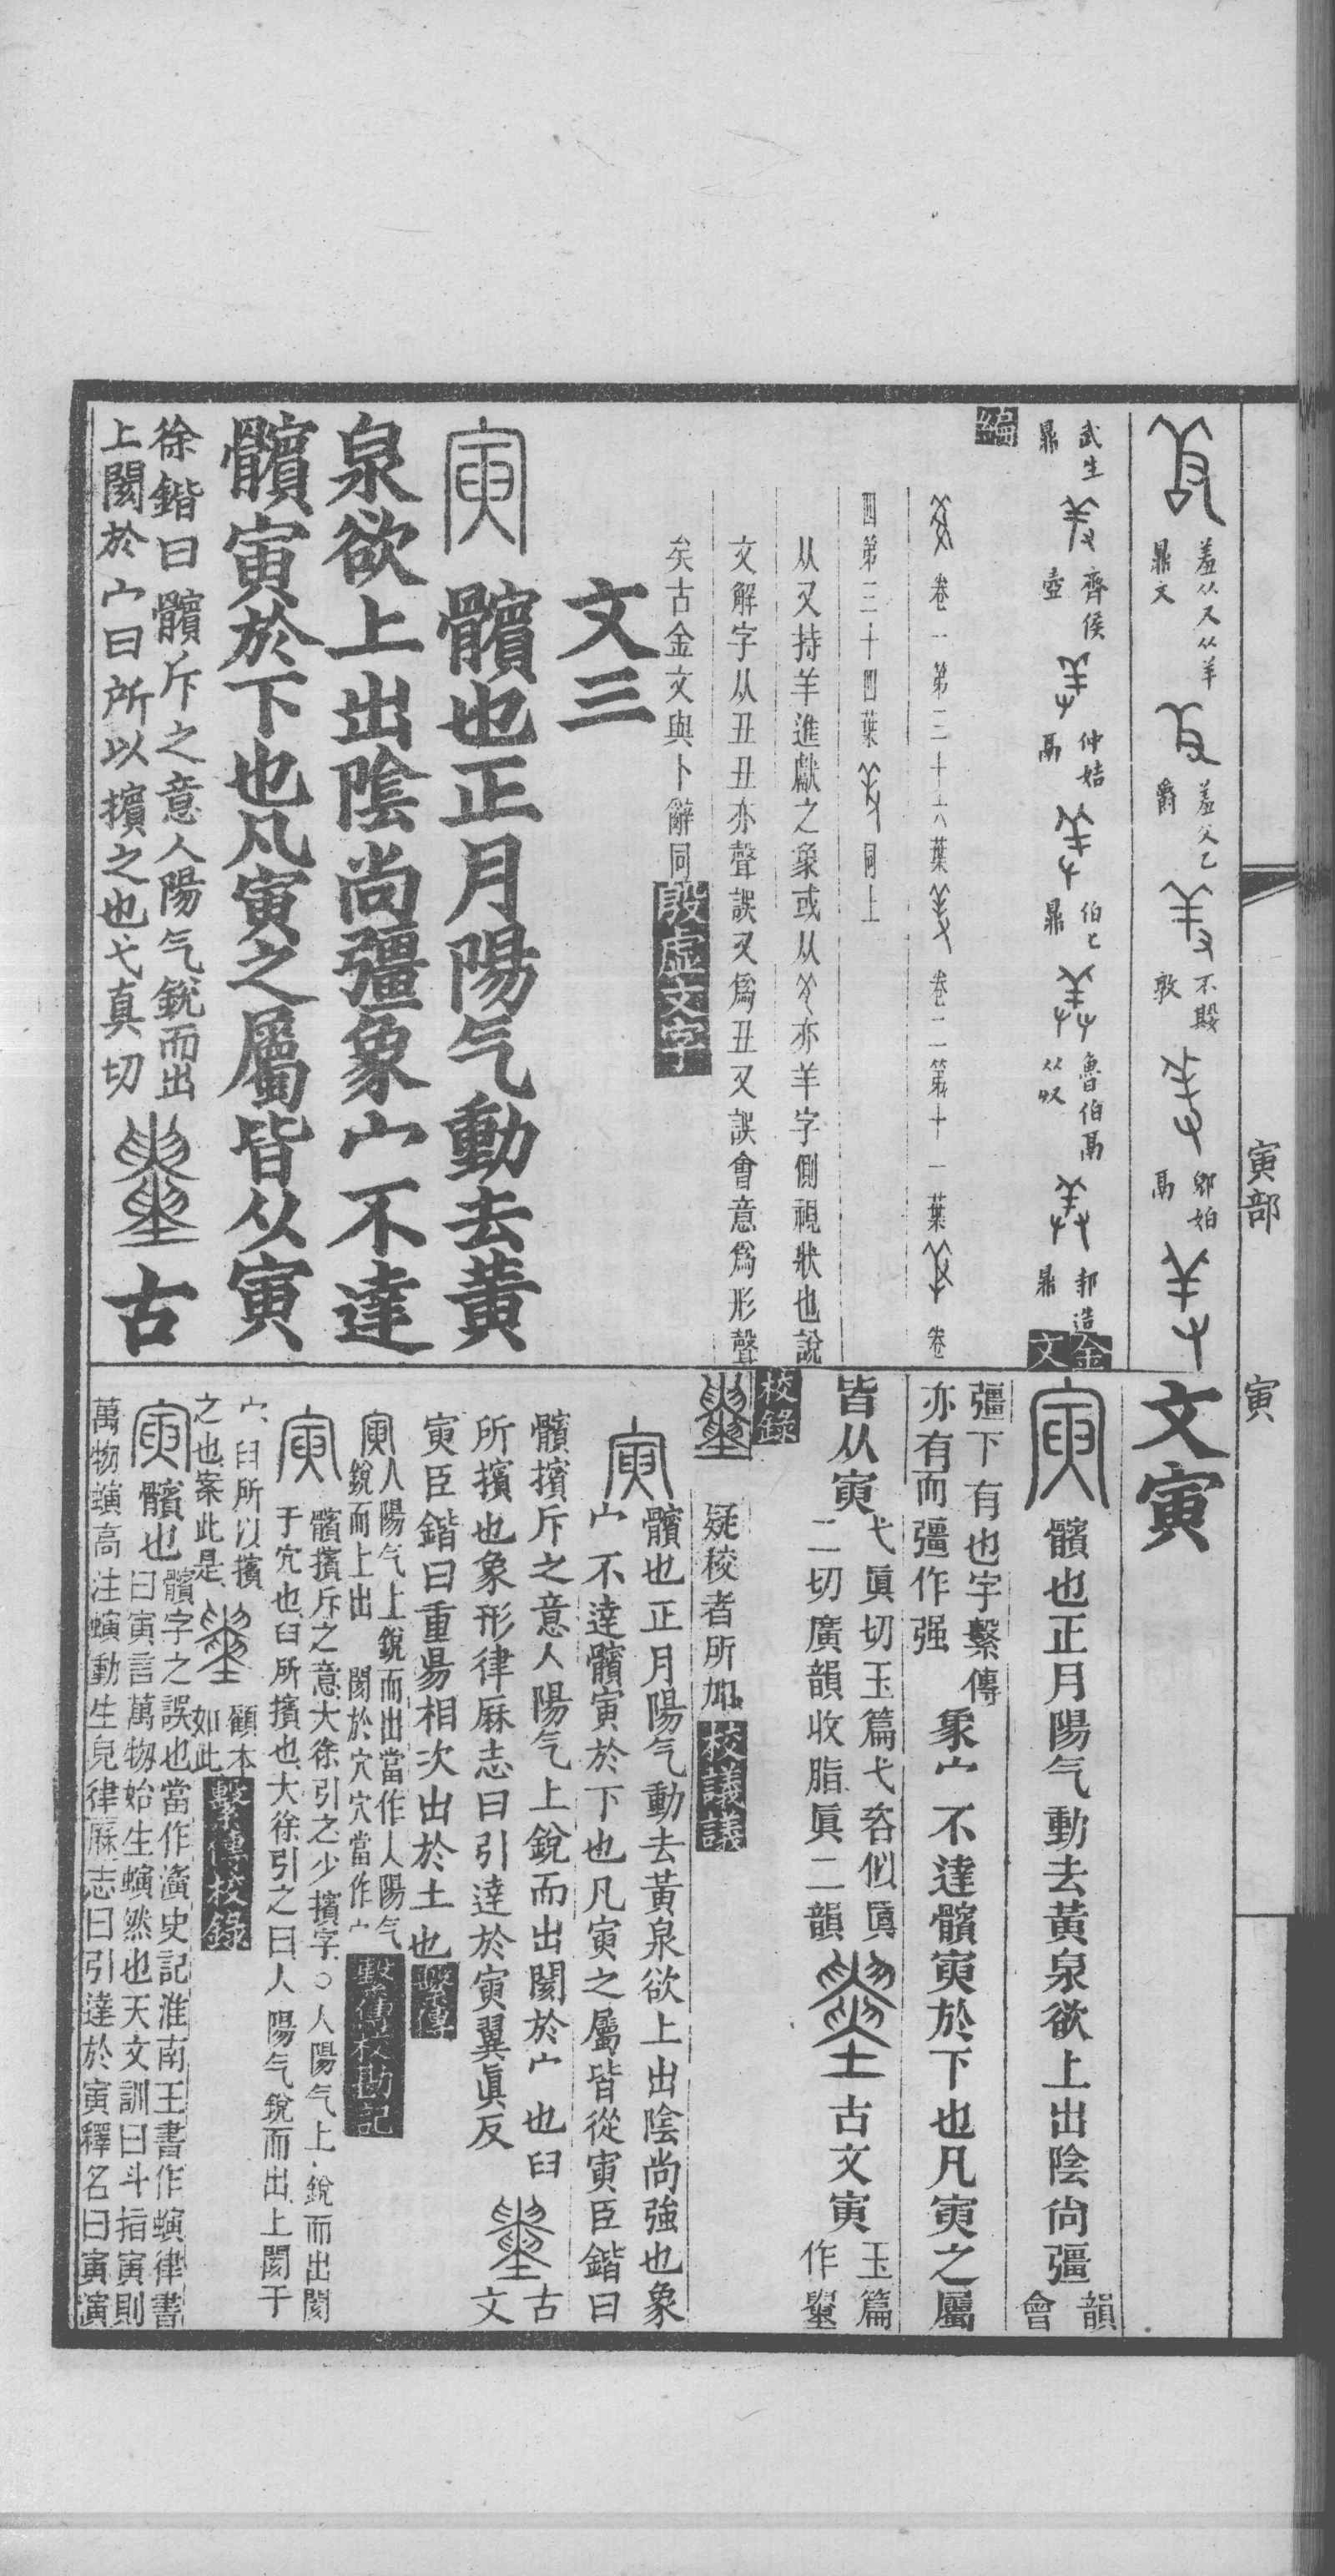 寅部
寅
羞从又从羊
鼎文
羞父乙
爵
不𡢁
敦
鄭姞
鬲
武生
鼎
齊侯
壺
仲姞
鬲
伯乇
鼎
魯伯鬲
从𠬞
邾造
鼎
金文
編
卷一第三十六葉 卷二第十一葉 卷
四第三十四葉 同上
从又持羊進獻之象或从 亦羊字側視狀也說
文解字从丑丑亦聲誤又爲丑又誤會意爲形聲
矣古金文與卜辭同殷虛文字
文三
寅 髕也正月陽气動去黃
泉欲上出陰尚彊象宀不達
髕寅於下也凡寅之屬皆从寅
徐鍇曰髕斥之意人陽气銳而出
上閡於宀臼所以擯之也弋真切
古
文寅
寅 髕也正月陽气動去黃泉欲上出陰尙彊
韻
會
彊下有也字繫傳
亦有而彊作强
象宀不達髕寅於下也凡寅之屬
皆从寅
弋眞切玉篇弋咨似眞
二切廣韻收脂眞二韻
古文寅
玉篇
作𡔯
校錄
疑校者所加校議議
寅 髕也正月陽气動去黃泉欲上出陰尚強也象
宀不達髕寅於下也凡寅之屬皆從寅臣鍇曰
髕擯斥之意人陽气上銳而出閡於宀也臼
所擯也象形律厤志曰引達於寅翼眞反
古
文
寅臣鍇曰重昜相次出於土也繫傳
寅 人陽气上銳而出當作人陽气
銳而上出 閡於穴穴當作宀
繫傳校勘記
寅 髕擯斥之意大徐引之少擯字○人陽气上銳而出閡
于宂也臼所擯也大徐引之曰人陽气銳而出上閡于
宀臼所以擯
之也案此是
顧本
如此
繫傳校錄
寅 髕也
髕字之誤也當作濥史記淮南王書作螾律書
曰寅言萬物始生螾然也天文訓曰斗指寅則
萬物螾高注螾動生皃律厤志曰引達於寅釋名曰寅演